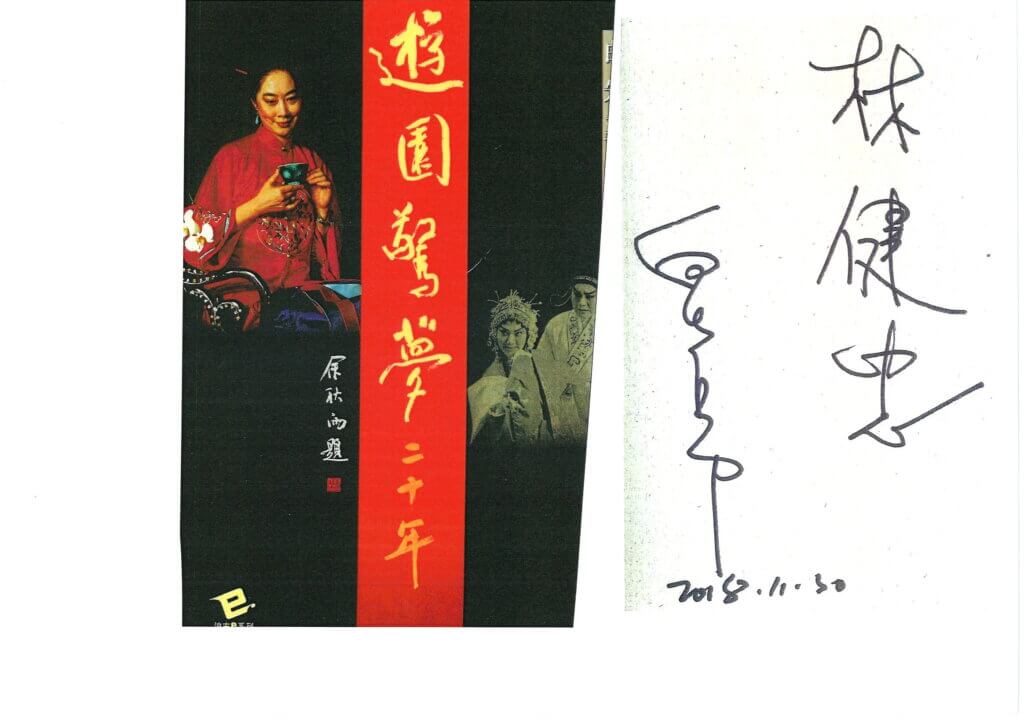 遊園驚夢二十年
余秋雨題
e
林健忠
2018.11.30